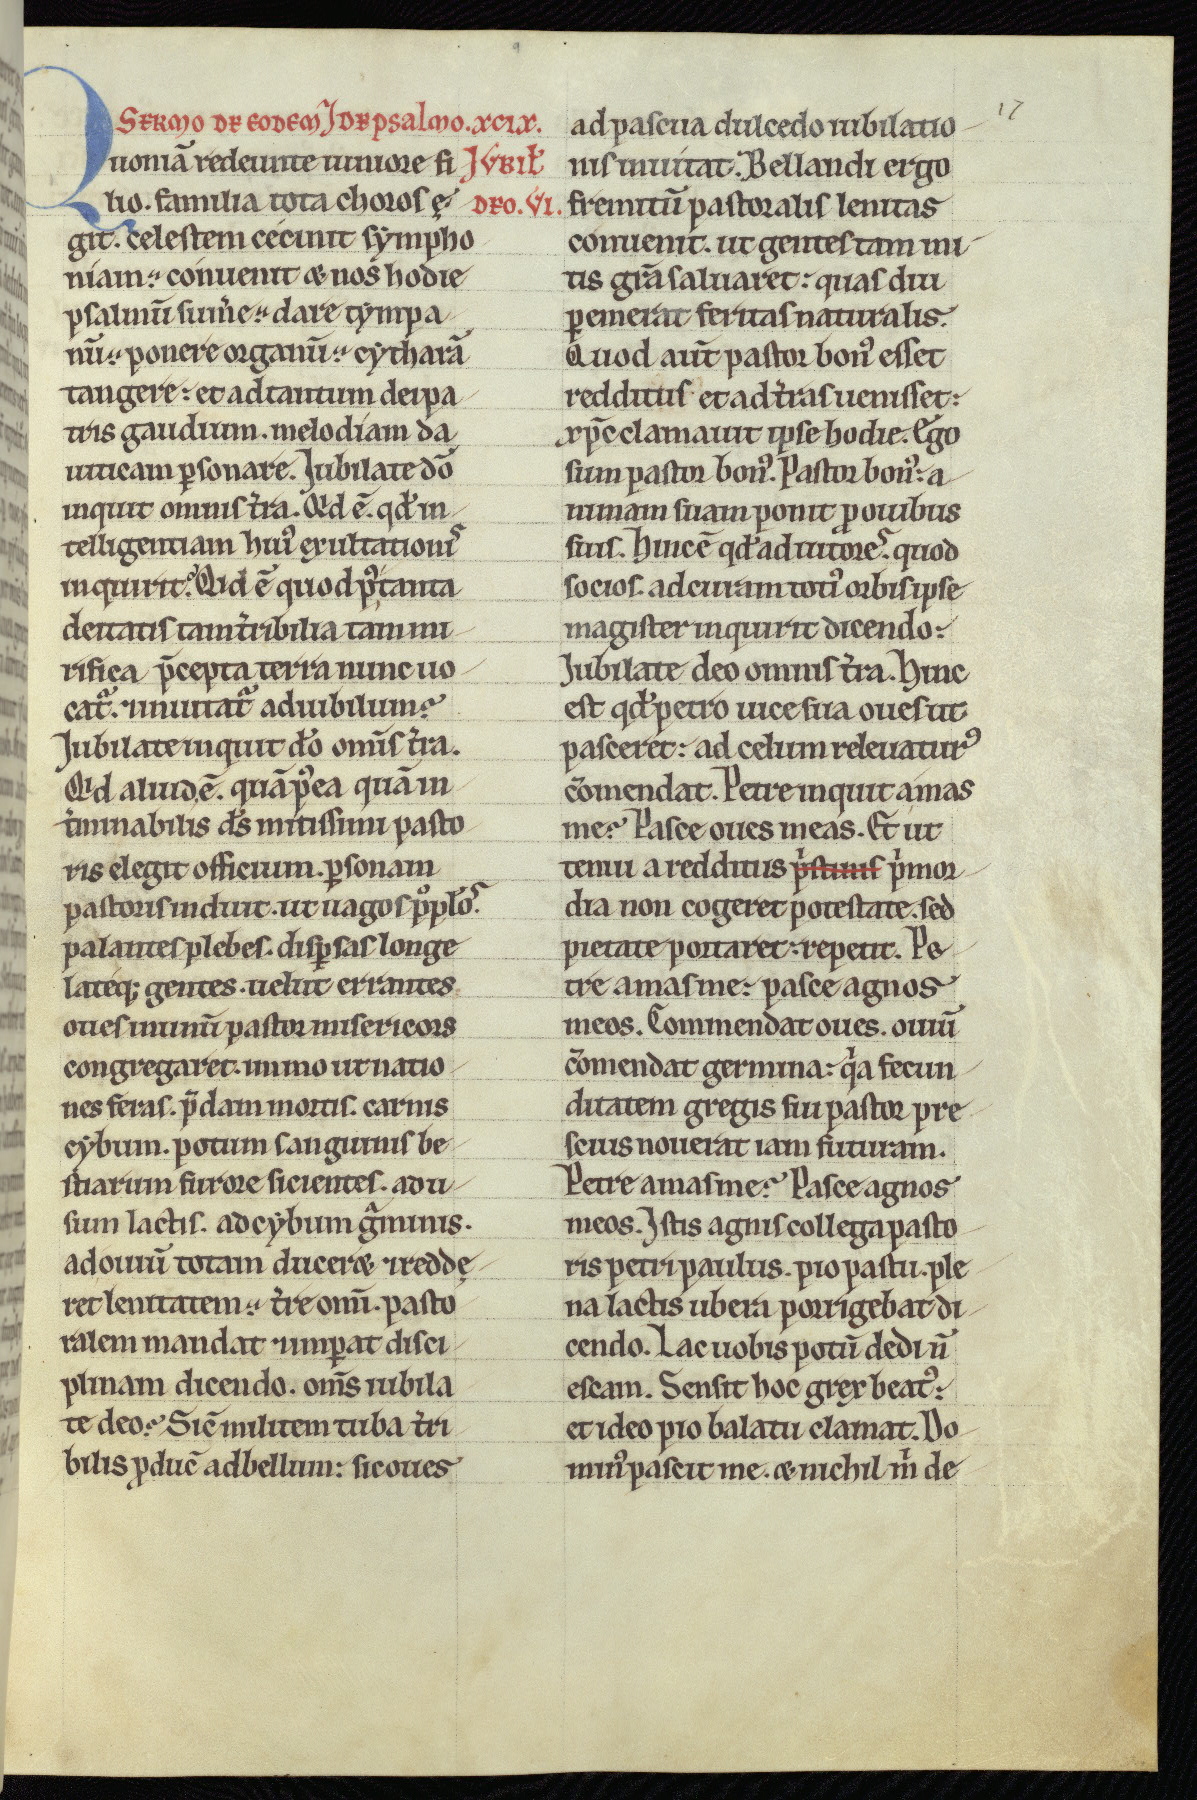 17
SERMO DE EODEM ID DE psalmo. xcix.
Quoniā redeunte iuniore fi IVBIL̄
lio. familia tota choros ę DEO. VI.
git. celestem cecinit sympho
niam: conuenit & nos hodie
psalmū sum̄e: dare tympa
nū: ponere organū: cytharā
tangere: et ad tantum dei pa
tris gaudium. melodiam da
uiticam ꝑsonare. Jubilate dō
inquit omnis t̄ra. Qd ē. qđ in
telligentiam hui᷒ exultationis
inquirit? Qid ē quod p᷒ tanta
deitatis tam t̄ribilia tam mi
rifica p̄cepta terra nunc uo
cat᷑. ⁊ inuitat᷑ ad iubilum?
Jubilate inquit dō om̄s t̄ra.
Qd aliud ē. quā p᷒ea quā in
t̄minabilis ds̄ mitissimi pasto
ris elegit officium. ꝑsonam
pastoris induit. ut uagos ppl̄os.
palantes plebes. disꝑsas longe
lateq; gentes. uelut errantes
oues in unū pastor misericors
congregaret. immo ut natio
nes feras. p̄dam mortis. carnis
cybum. potum sanguinis be
stiarum furore sicientes. ad u
sum lactis. ad cybum g̃minis.
ad ouiū totam ducer& ⁊ reddę
ret lenitatem: t̄re omī. pasto
ralem mandat ⁊ imꝑat disci
plinam dicendo. om̄s iubila
te deo? Sic̄ militem tuba t̄ri
bilis ꝓduc̄ ad bellum: sic oues
ad pascua dulcedo iubilatio
nis inuitat. Bellandi ergo
fremitū pastoralis lenitas
conuenit. ut gentes tam mi
tis gr̄a saluaret: quas diu
ꝑemerat feritas naturalis.
Quod aūt pastor bon᷒ esset
redditus et ad t̄ras uenisset:
xp̄c clamauit ipse hodie. Ego
sum pastor bon᷒. Pastor bon᷒: a
nimam suam ponit ꝓ ouibus
suis. Hinc ē qđ adiutores. quod
socios. ad curam toti᷒ orbis ipse
magister inquirit dicendo:
Jubilate deo omnis t̄ra. Hinc
est qđ petro uice sua oues ut
pasceret: ad celum releuatur᷒
c̄omendat. Petre inquit amas
me? Pasce oues meas. Et ut
tenui a redditus p̄stinis p̄mor
dia non cogeret potestate. sed
pietate portaret: repetit. Pe
tre amas me: pasce agnos
meos. Commendat oues. ouiū
c̄omendat germina: qͥa fecun
ditatem gregis sui pastor pre
scius nouerat iam futuram.
Petre amas me? Pasce agnos
meos. Istis agnis collega pasto
ris petri paulus. pio pastu. ple
na lactis ubera porrigebat di
cendo. Lac uobis potū dedi n̄
escam. Sensit hoc grex beat᷒:
et ideo pio balatu clamat. Do
min᷒ pascit me. & nichil m̄ de